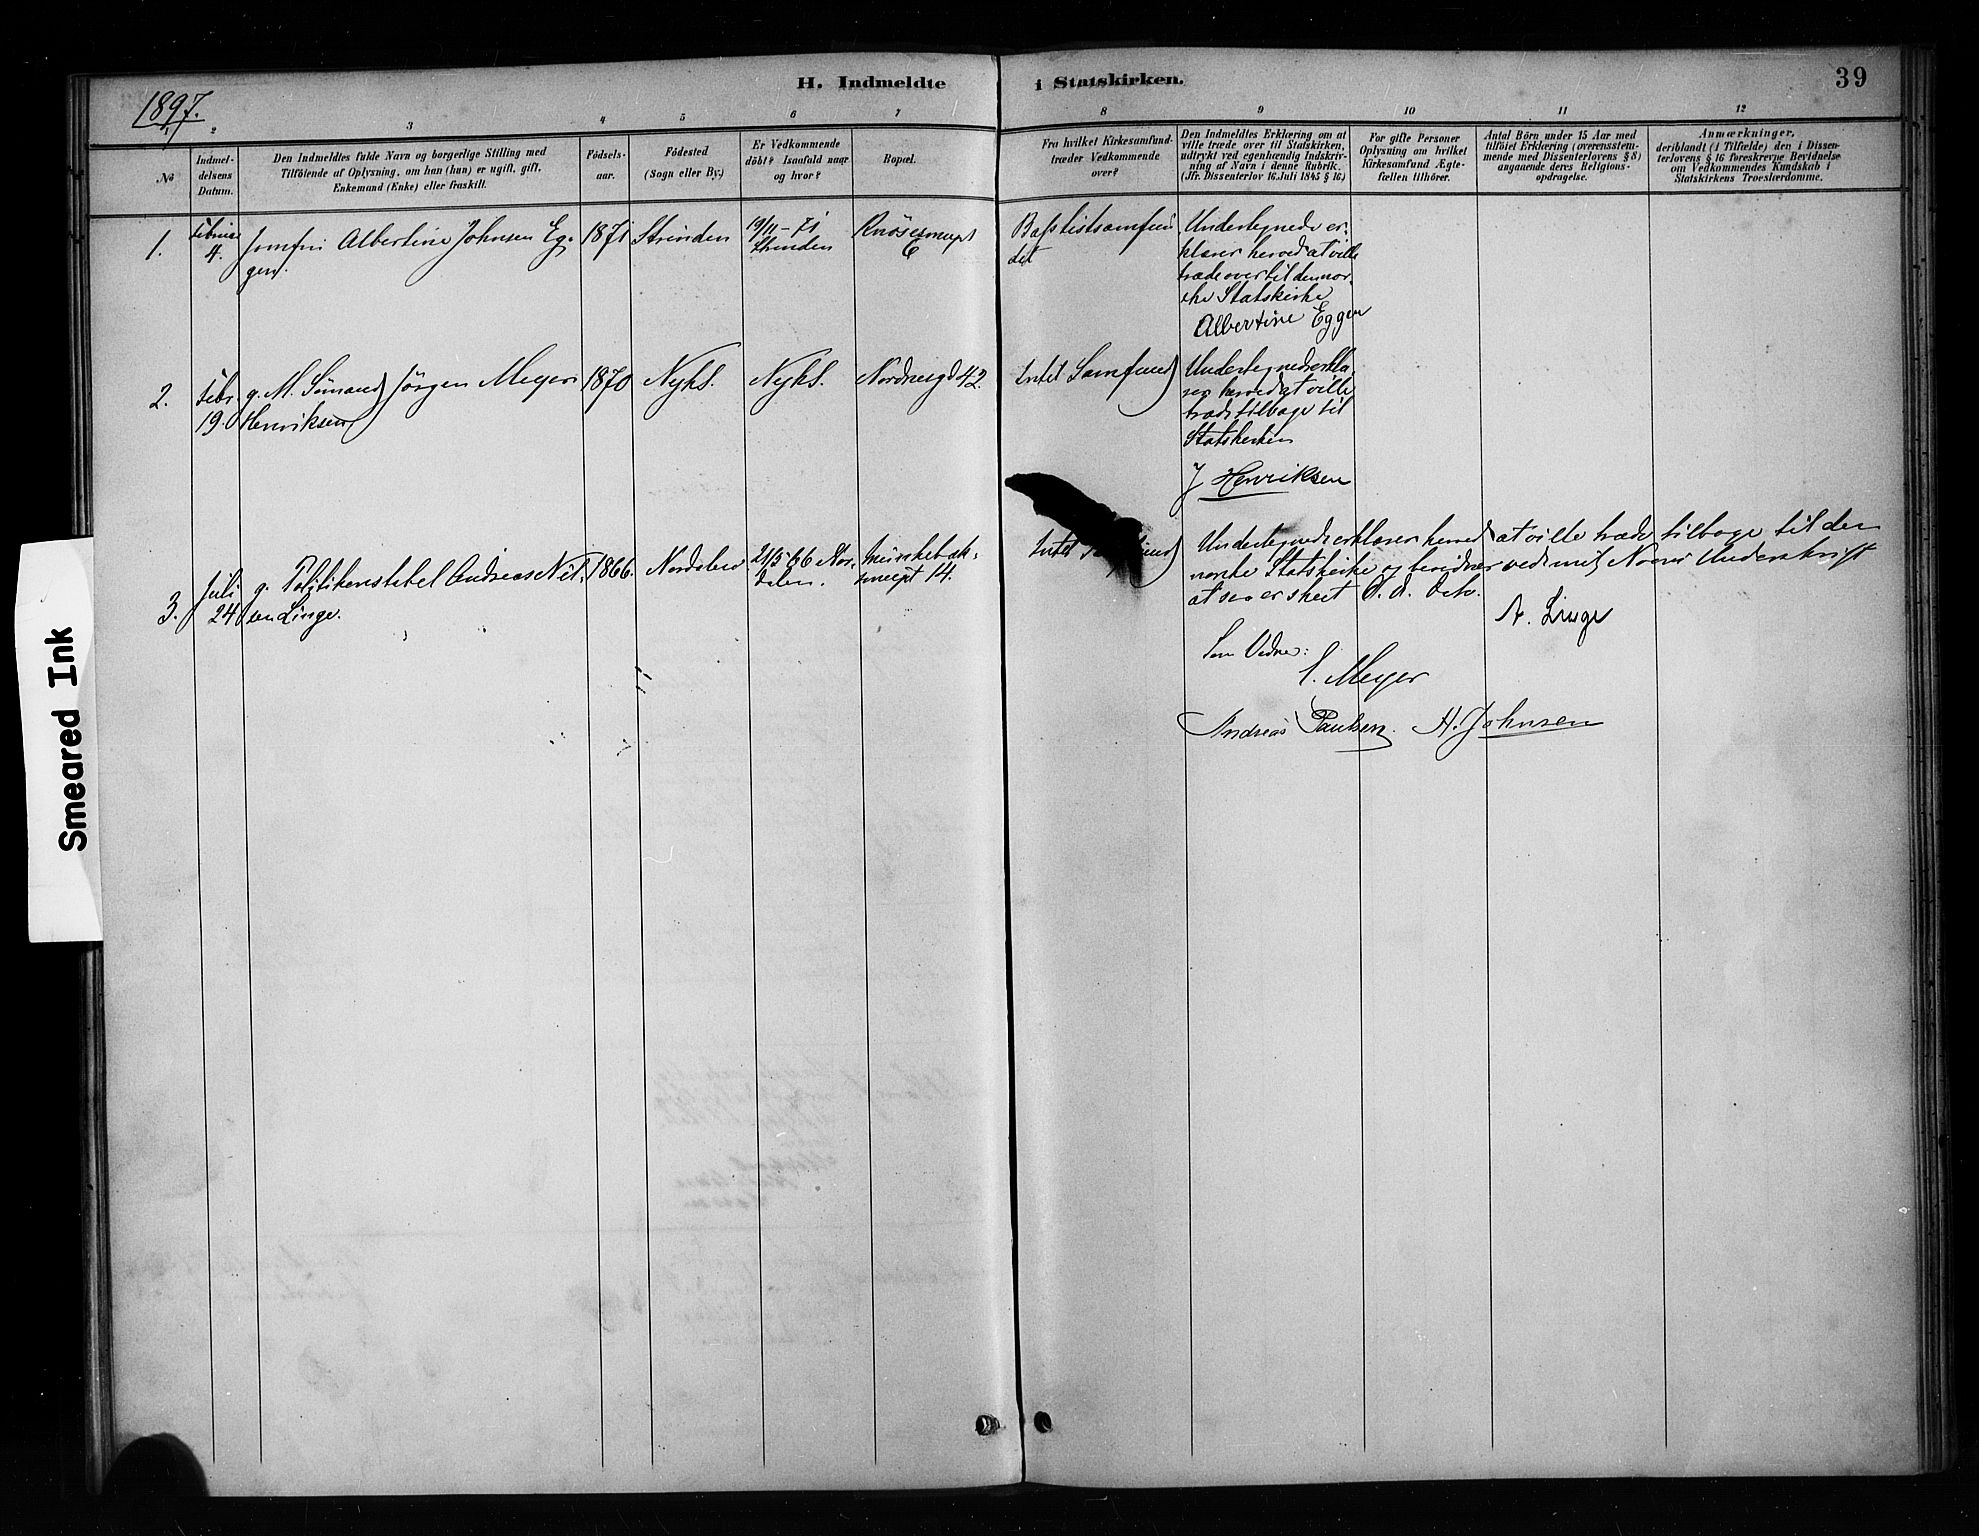 H. Indmeldte i Statskirken.
39
1897.
1 2 3 4 5 6 7 8 9 10 11 12
No
Indmel-
delsens
Datum.
Den Indmeldtes fulde Navn og borgerlige Stilling med
Tilföiende af Oplysning, om han (hun) er ugift, gift,
Enkemand (Enke) eller fraskilt.
Födsels-
aar.
Födested
(Sogn eller By.)
Er Vedkommende
döbt? Isaafald naar
og hvor?
Bopæl.
Fra hvilket Kirkesamfund
træder Vedkommende
over?
Den Indmeldtes Erklæring om at
ville træde over til Statskirken,
udtrykt ved egenhændig Indskriv-
ning af Navn i denne Rubrik.
(Jfr. Dissenterlov 16. Juli 1845 § 16.)
For gifte Personer
Oplysning om hvilket
Kirkesamfund Ægte-
fællen tilhörer.
Antal Börn under 15 Aar med
tilföiet Erklæring (overensstem-
mende med Dissenterlovens § 8)
angaaende deres Religions-
opdragelse.
Anmærkninger,
deriblandt (i Tilfælde) den i Dissen-
terlovens § 16 foreskrevne Bevidnelse
om Vedkommendes Kundskab i
Statskirkens Troeslærdomme.
1.
4.
Jomfru Albertine Johnsen Eg-
gen.
1871
Strinden
19/11-71
Strinden
6
Undertegnede er-
klærer herved at ville
træde over til den nor-
ske Statskirke
Albertine Eggen
2.
Febr.
19.
g. M. Sömand Jörgen Meyer
Henriksen
1870
Nyks.
Nyks.
42
Intet Samfund
Undertegnede erklæ-
rer herved at ville
træde tilbage til
Statskirken
J Henriksen
3.
Juli
24
g. Politikonstabel Andreas Nil-
sen Linge.
1866.
Norddalen
66 Nor-
dalen.
14.
Intet
Undertegnede erklærer herved at ville træde tilbage til den
norske Statskirke og bevidner ved mit Navns Underskrift
at saa er skeet D. d. Dato.
A. Linge
Som Vidne:
Meyer
Andreas Paulsen. H. Johnsen
Smeared Ink